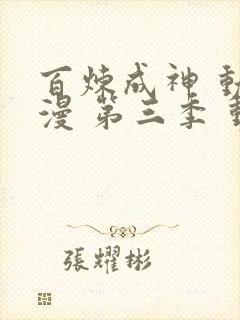 百煉成神 動
漫 第三季 動
張耀彬